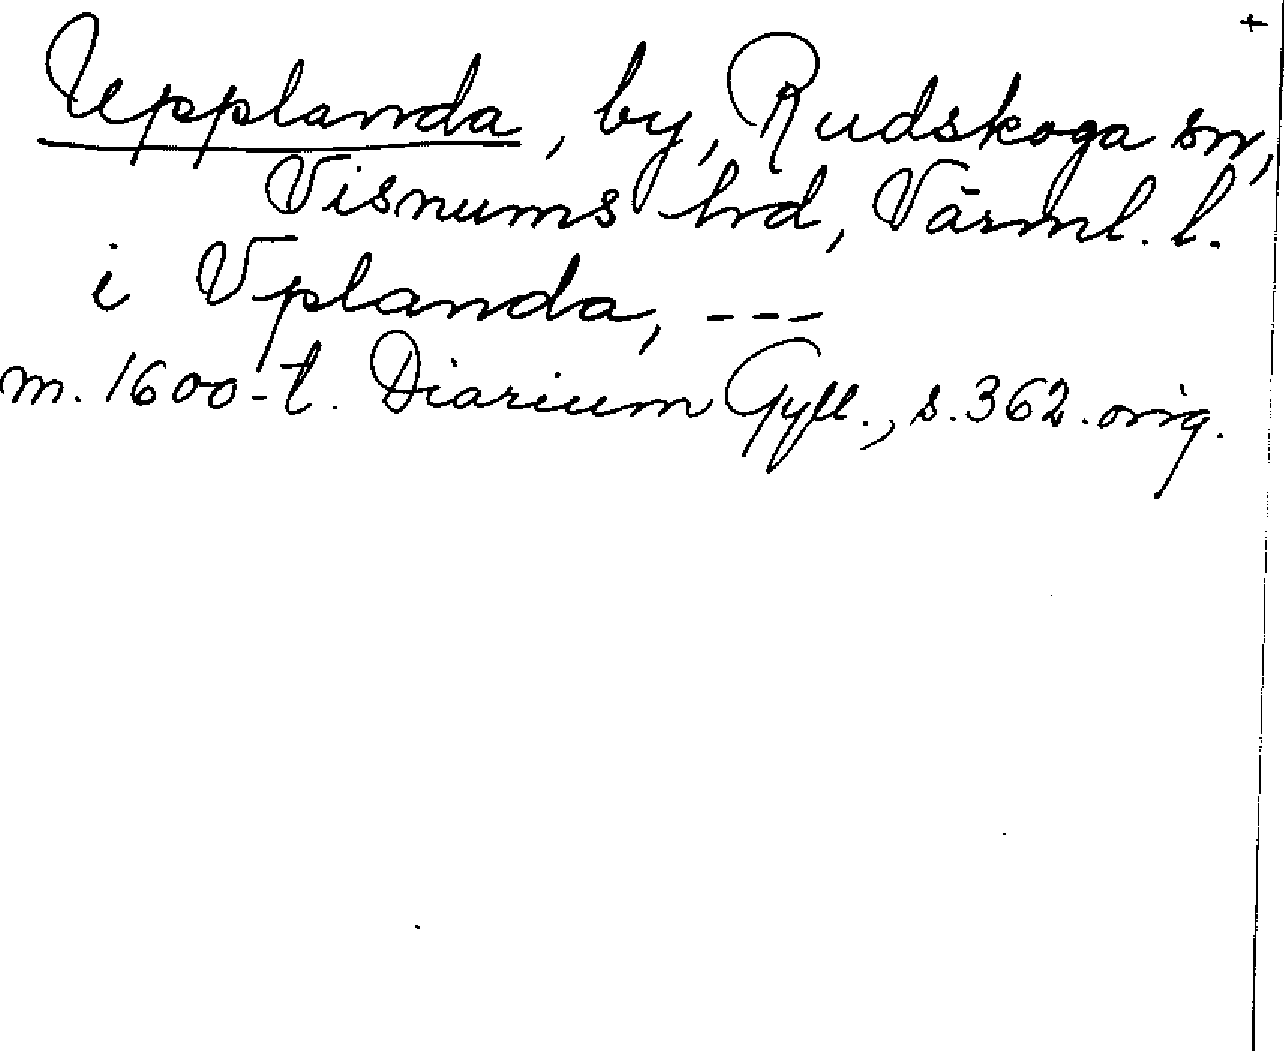 +
Upplanda, by, Rudskoga sn,
Visnums hrd, Värml. l.
i Vplanda, ---
m. 1600-t. Diarium Gyll., s. 362. orig.